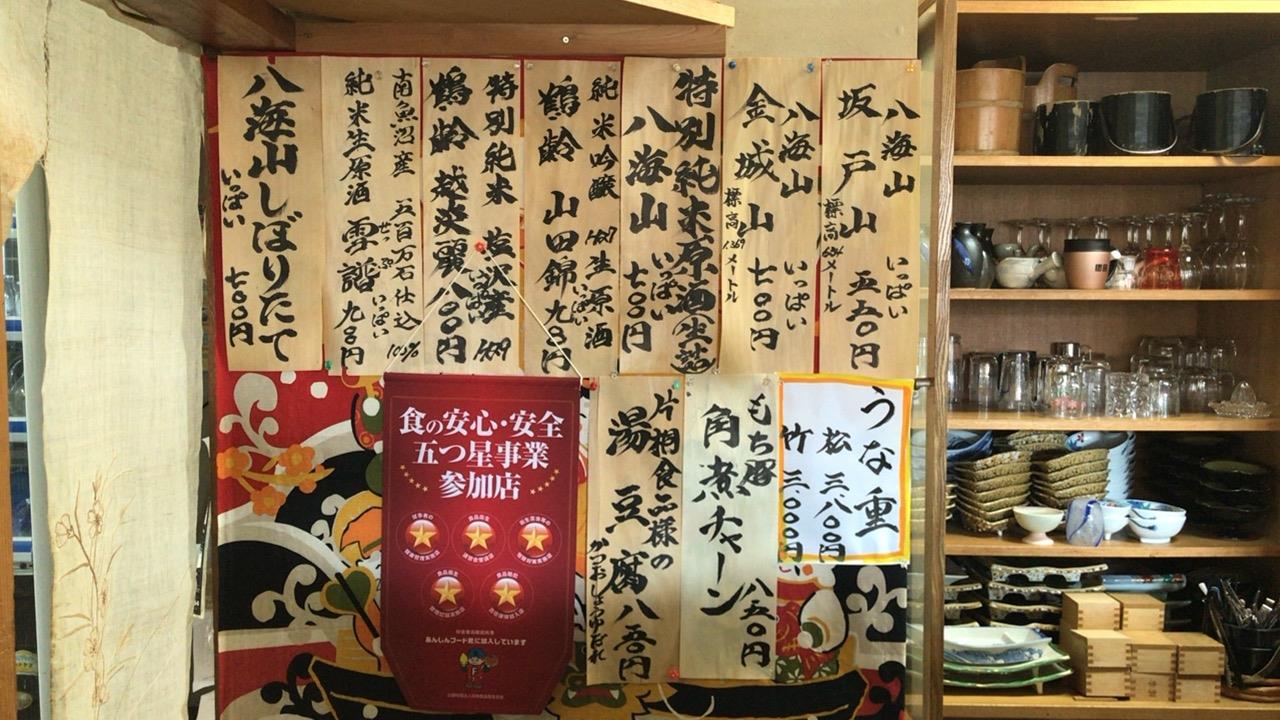 八海山
坂戸山 五五〇円
標高634メートル
いっぱい
八海山
金城山 七〇〇円
標高1369メートル
いっぱい
特別純米原酒生詰
八海山 七〇〇円
いっぱい
純米吟醸 生原酒
鶴齢 山田錦 九〇円
いっぱい
特別純米 塩沢産
鶴齢 越淡麗 八〇〇円
南魚沼産 五百万石仕込 100%
純米生原酒 雪譜 九〇円
せっぷ
いっぱい
八海山しぼりたて
いっぱい 七〇〇円
うな重
松 三八〇〇円
竹 三〇〇〇円
もち豚
角煮チャーシン 八五〇円
片桐食品様の
湯豆腐 八五〇円
かつおしょうゆだれ
食の安心・安全
五つ星事業
参加店
あんしんフード君に加入しています